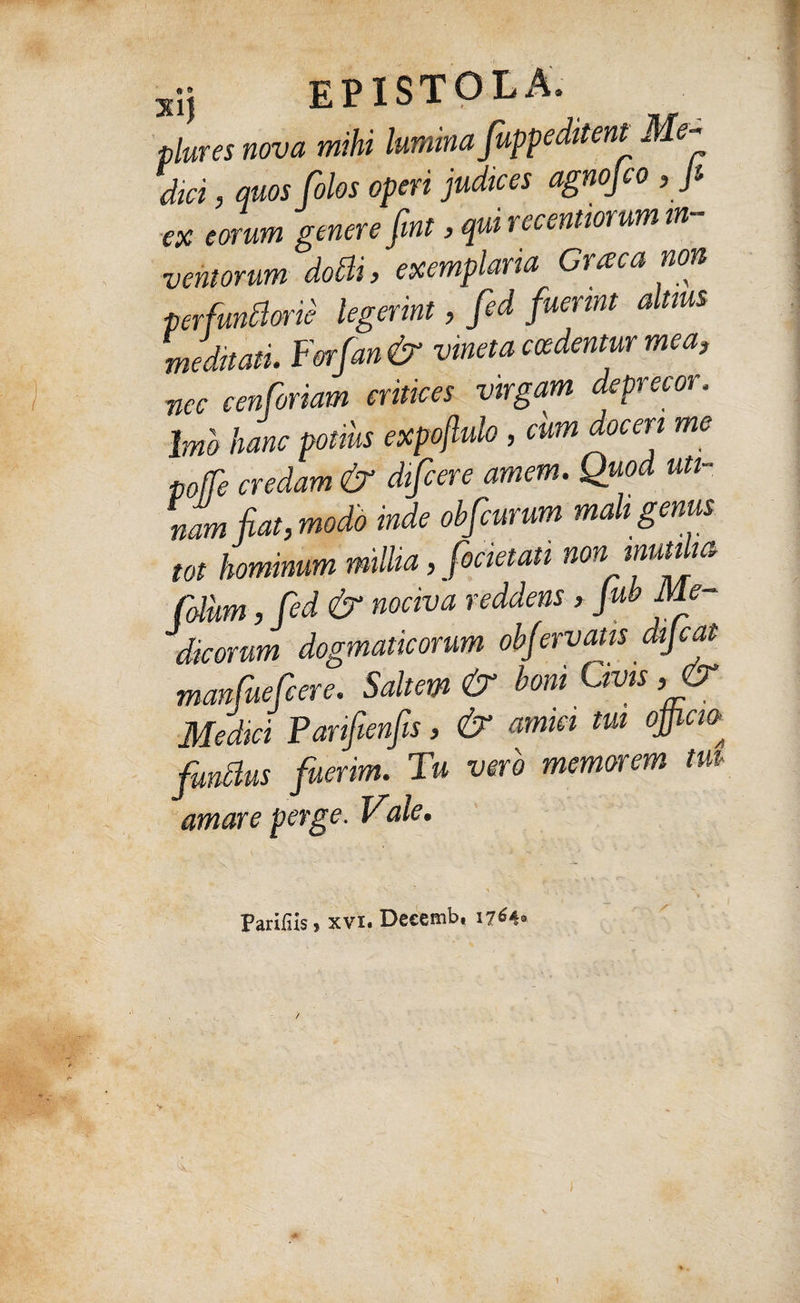 xij EPISTOLA.
plures nova mihi lumina ſuppeditent Me-
dici, quos ſolos operi judices agnoſco, ſi
ex eorum genere ſint, qui recentiorum in-
ventorum docti, exemplaria Græca non
perfunctoriè legerint, ſed fuerint altiùs
meditati. Forſan & vineta cœdentur mea,
nec cenſoriam critices virgam deprecor.
Imò hanc potiùs expoſtulo, cùm doceri me
poſſe credam & diſcere amem. Quod uti-
nam fiat, modò inde obſcurum mali genus
tot hominum millia, ſocietati non inutilia
ſolùm, ſed & nociva reddens, ſub Me-
dicorum dogmaticorum obſervatis diſcat
manſueſcere. Saltem & boni Civis, &
Medici Pariſienſis, & amici tui officio
functus fuerim. Tu verò memorem tui
amare perge. Vale.
Pariſiis, XVI. Decemb. 1764.